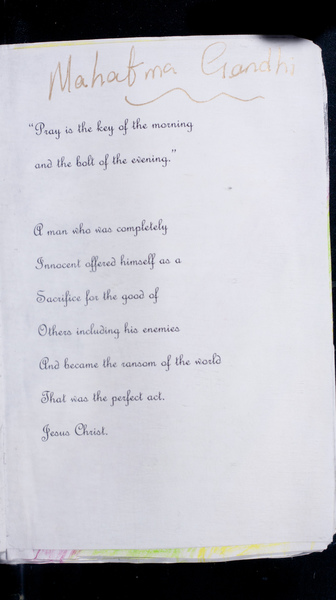 Mahatma Gandhi
"Pray is the key of the morning
and the bolt of the evening."
A man who was completely
Innocent offered himself as a
Sacrifice for the good of
Others including his enemies
And became the ransom of the world
That was the perfect act.
Jesus Christ.